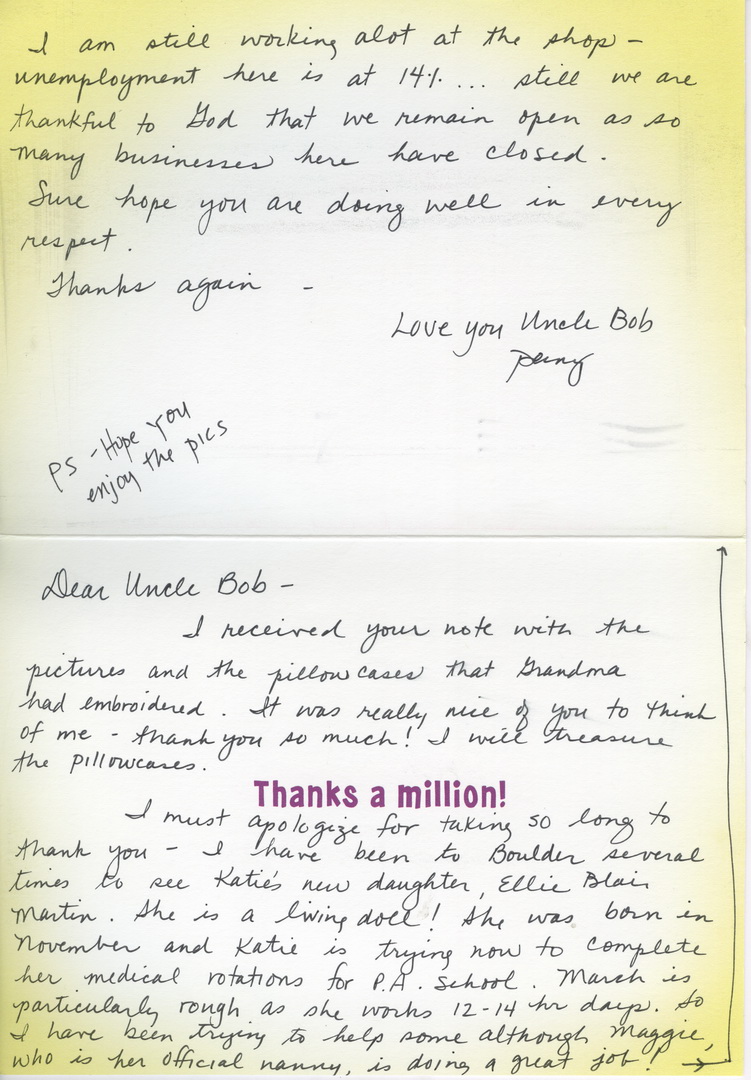 Dear Uncle Bob -
I received your note with the
pictures and the pillowcases that Grandma
had embroidered. It was really nice of you to think
of me - thank you so much! I will treasure
the pillowcases.
Thanks a million!
I must apologize for taking so long to
thank you - I have been to Boulder several
times to see Katie's new daughter, Ellie Blair
Martin. She is a living doll! She was born in
November and Katie is trying now to complete
her medical rotations for P.A. School. March is
particularly rough as she works 12-14 hr days. So
I have been trying to help some although Maggie,
who is her official nanny, is doing a great job! →
I am still working alot at the shop -
unemployment here is at 14% ... still we are
thankful to God that we remain open as so
many businesses here have closed.
Sure hope you are doing well in every
respect.
Thanks again -
Love you Uncle Bob
Penny
PS - Hope you
enjoy the pics